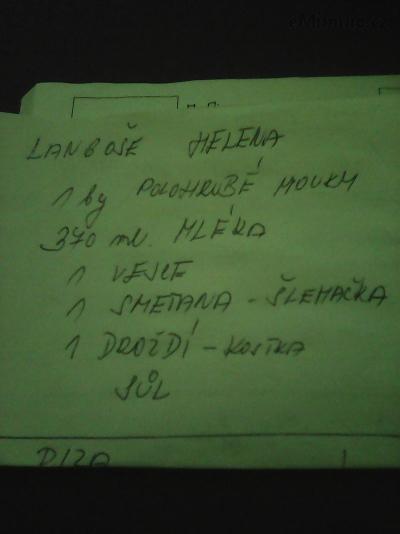 eMimino.cz
LANGOŠE HELENA
1 kg POLOHRUBÉ MOUKY
370 ml. MLÉKA
1 VEJCE
1 SMETANA - ŠLEHAČKA
1 DROŽDÍ - KOSTKA
SŮL
PIZA